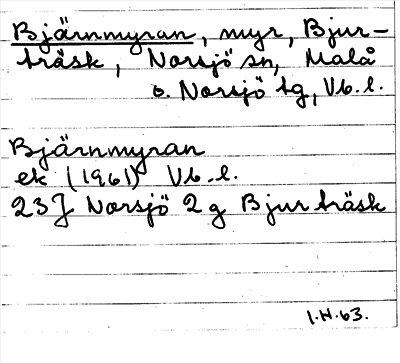 Bjärnmyran, myr, Bjur-
träsk, Norsjö sn, Malå
o. Norsjö tg, Vb. l.
Bjärnmyran
ek (1961) Vb. l.
23J Norsjö 2 g Bjurträsk
1.H.63.